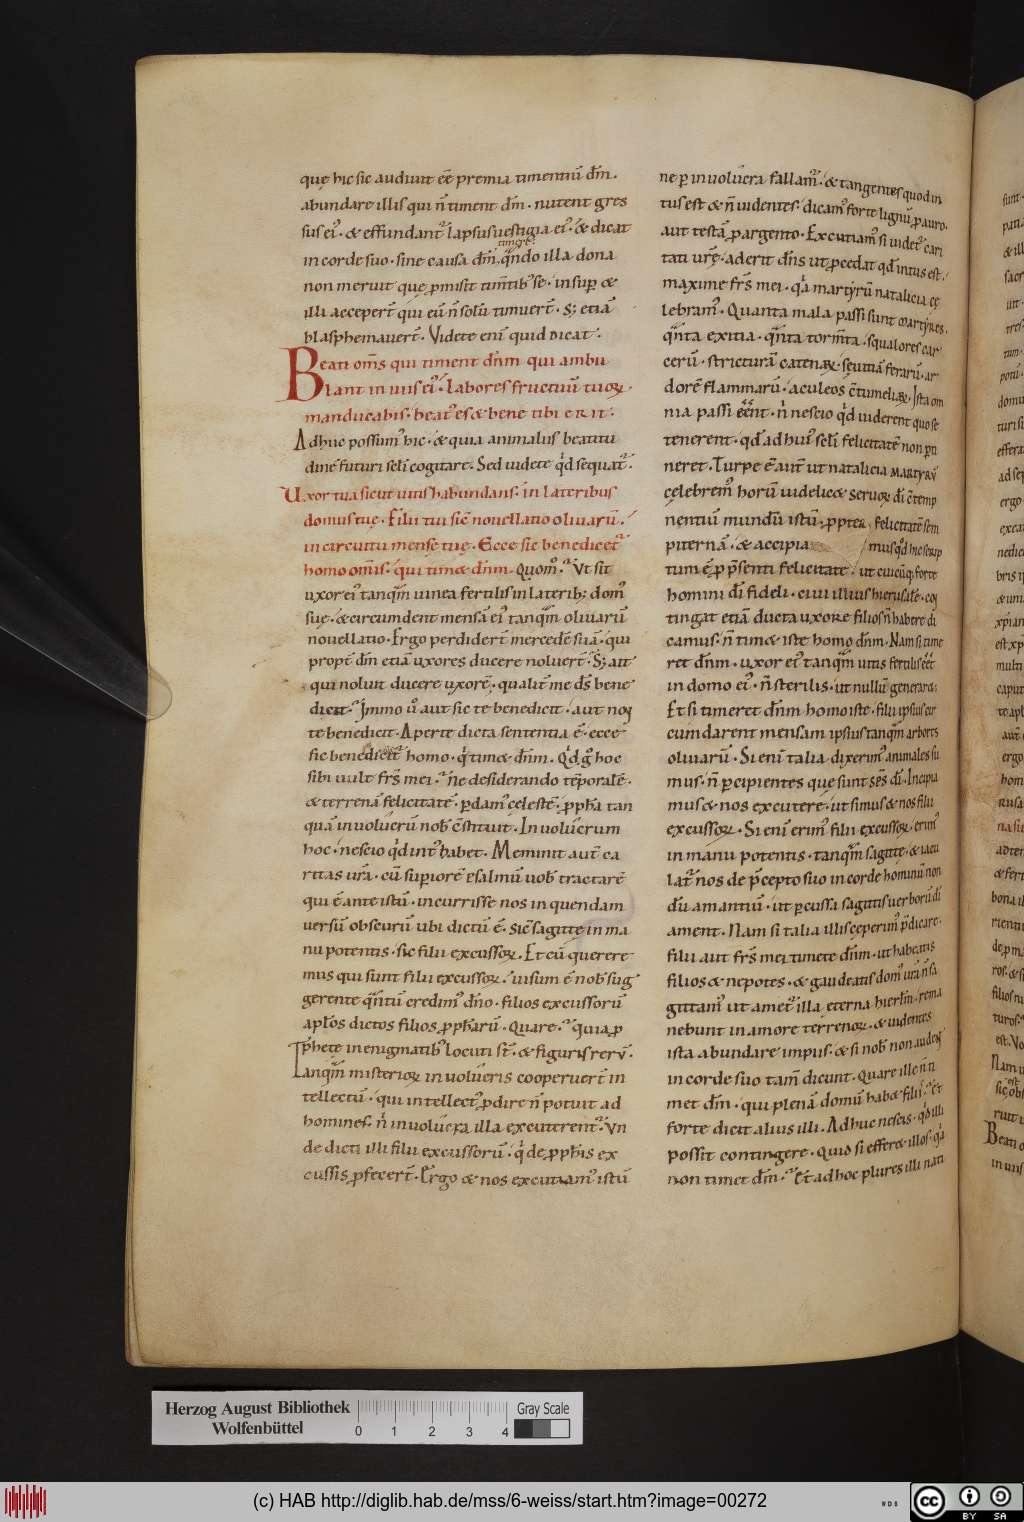 quę hic sic audiuit eē premia timentiū dm̄.
abundare illis qui n̄ timent dm̄. nutent gres
sus ei'. & effundant' lapsus uestigia ei'. & dicat
timere
in corde suo. sine causa dm̄. qn̄do illa dona
non meruit que ꝓmisit tim̄tib' se. insup &
illi accepert̄ qui eū n̄ solū timuert̄. S; etiā
blasphemauert̄. Videte eni quid dicat.
Beati om̄s qui timent dn̄m qui ambu
lant in uiis ei'. Labores fructuū tuoꝝ.
manducabis. beat' es & bene tibi erit.
Adhuc possum' hic. & quia animalis beatitu
dinē futuri sc̄li cogitare. Sed uidete qd sequat'.
Uxor tua sicut uitis habundans. in lateribus
domus tuę. Filii tui sic̄ nouellatio oliuarū.
in circuitu mensę tuę. Ecce sic benedicet'
homo om̄is. qui tim& dn̄m. Quom'. Vt sit
uxor ei' tanqm̄ uinea fertilis in laterib; dom'
suę. & circumdent mensā ei' tanqm̄ oliuarū
nouellatio. Ergo perdidert̄ mercedē suā. qui
propt̄ dm̄ etiā uxores ducere noluert̄. S; ait
qui noluit ducere uxorē. qualit̄ me ds̄ bene
dicet. Immo u° aut sic te benedicit. aut non
te benedicit. Aperte dicta sententia ē. ecce
sic benedicet' homo. qi tim& dn̄m. Qd g° hoc
sibi uult frs̄ mei. ne desiderando tēporalē.
& terrenā felicitatē. ꝑdam' cęlestē. ꝓph̄a tan
quā inuolucrū nob̄ cstituit. Inuolucrum
hoc. nescio qd int' habet. Meminit aut̄ ca
ritas ur̄a. cū supiorē psalmū uob̄ tractarē
qui ē ante istū. incurrisse nos in quendam
uersū obscurū ubi dictū ē. sic̄ sagitte in ma
nu potentis. sic filii excussoꝝ. Et cū querere
mus qui sunt filii excussoꝝ. uisum ē nob̄ sug
gerente qn̄tū credim' dn̄o. filios excussorū
apl̄os dictos filios ꝓph̄arū. Quare. quia ꝓ
phete in enigmatib' locuti st̄. & figuris rerū.
Tanqm̄ misterioꝝ inuolucris cooperuert̄ in
tellectū. qui intellect' ꝓdire n̄ potuit ad
homines. n̄ inuolucra illa excuterent'. Vn
de dicti illi filii excussorū. qi de ꝓph̄is ex
cussis ꝓfecert̄. Ergo & nos excutiam' istū
ne ꝑ inuolucra fallam'. & tangentes quod in
tus est & n̄ uidentes. dicam' forte lignū ꝓ auro.
aut testā ꝓ argento. Excutiam' si uidet' cari
tati ur̄ę. aderit dn̄s ut ꝓcedat qd intus est.
maxime frs̄ mei. qa martyrū natalicia cę
lebram'. Quanta mala passi sunt martyres.
qn̄ta exitia. qn̄ta torm̄ta. squalores car
cerū. stricturā catenaꝝ. sęuitiā ferarū. ar
dorē flammarū. aculeos c̄tumeliaꝝ. Ista om
nia passi eent. n̄ nescio qd uiderent quo se
tenerent. qd ad hui' sc̄li felicitatē non ꝑti
neret. Turpe ē aut̄ ut natalicia martyrū
cęlebrem' horū uidelic& seruoꝝ di c̄temp
nentiū mundū istū. ꝓpter felicitatē sem
piternā. & accipia mus qd hic scrip
tum ē. ꝓ p̄senti felicitate. ut cuicūq; forte
homini di fideli. ciui illi' hierusalē. con
tingat etiā ducta uxore filios n̄ habere di
camus. n̄ tim& iste homo dn̄m. Nam si time
ret dn̄m. uxor ei' tanqm̄ uitis fertilis eet
in domo ei'. n̄ sterilis. ut nullū generaret.
Et si timeret dn̄m homo iste. filii ipsius cir
cum darent mensam ipsius tanqm̄ arbores
oliuarū. Si eni talia dixerim' animales su
mus. n̄ ꝑcipientes que sunt sp̄s di. Incipia
mus & nos excutere. ut simus & nos filii
excussoꝝ. Si eni erim' filii excussoꝝ. erim'
in manu potentis. tanqm̄ sagitte. & iacu
lat' nos de p̄cepto suo in corde hominū non
dū amantiū. ut ꝑcussi sagittis uerborū di
ament. Nam si talia illis ceperim' p̄dicare.
filii aut frs̄ mei timete dn̄m. ut habeatis
filios & nepotes. & gaudeatis dom' ur̄a. n̄ sa
gittam' ut amet' illa eterna hierl̄m. rema
nebunt in amore terrenoꝝ. & uidentes
ista abundare impiis. & si nob̄ non audent
in corde suo tam̄ dicunt. Quare ille n̄ ti
met dm̄. qui plenā domū hab& filiis. Et
forte dicit alius illi. Adhuc nescis. qd illi
possit contingere. Quid si effer& illos. qa
non timet dm̄. Et ad hoc plures illi nati
Herzog August Bibliothek
Wolfenbüttel
0 1 2 3 4
Gray Scale
(c) HAB http://diglib.hab.de/mss/6-weiss/start.htm?image=00272
cc BY SA